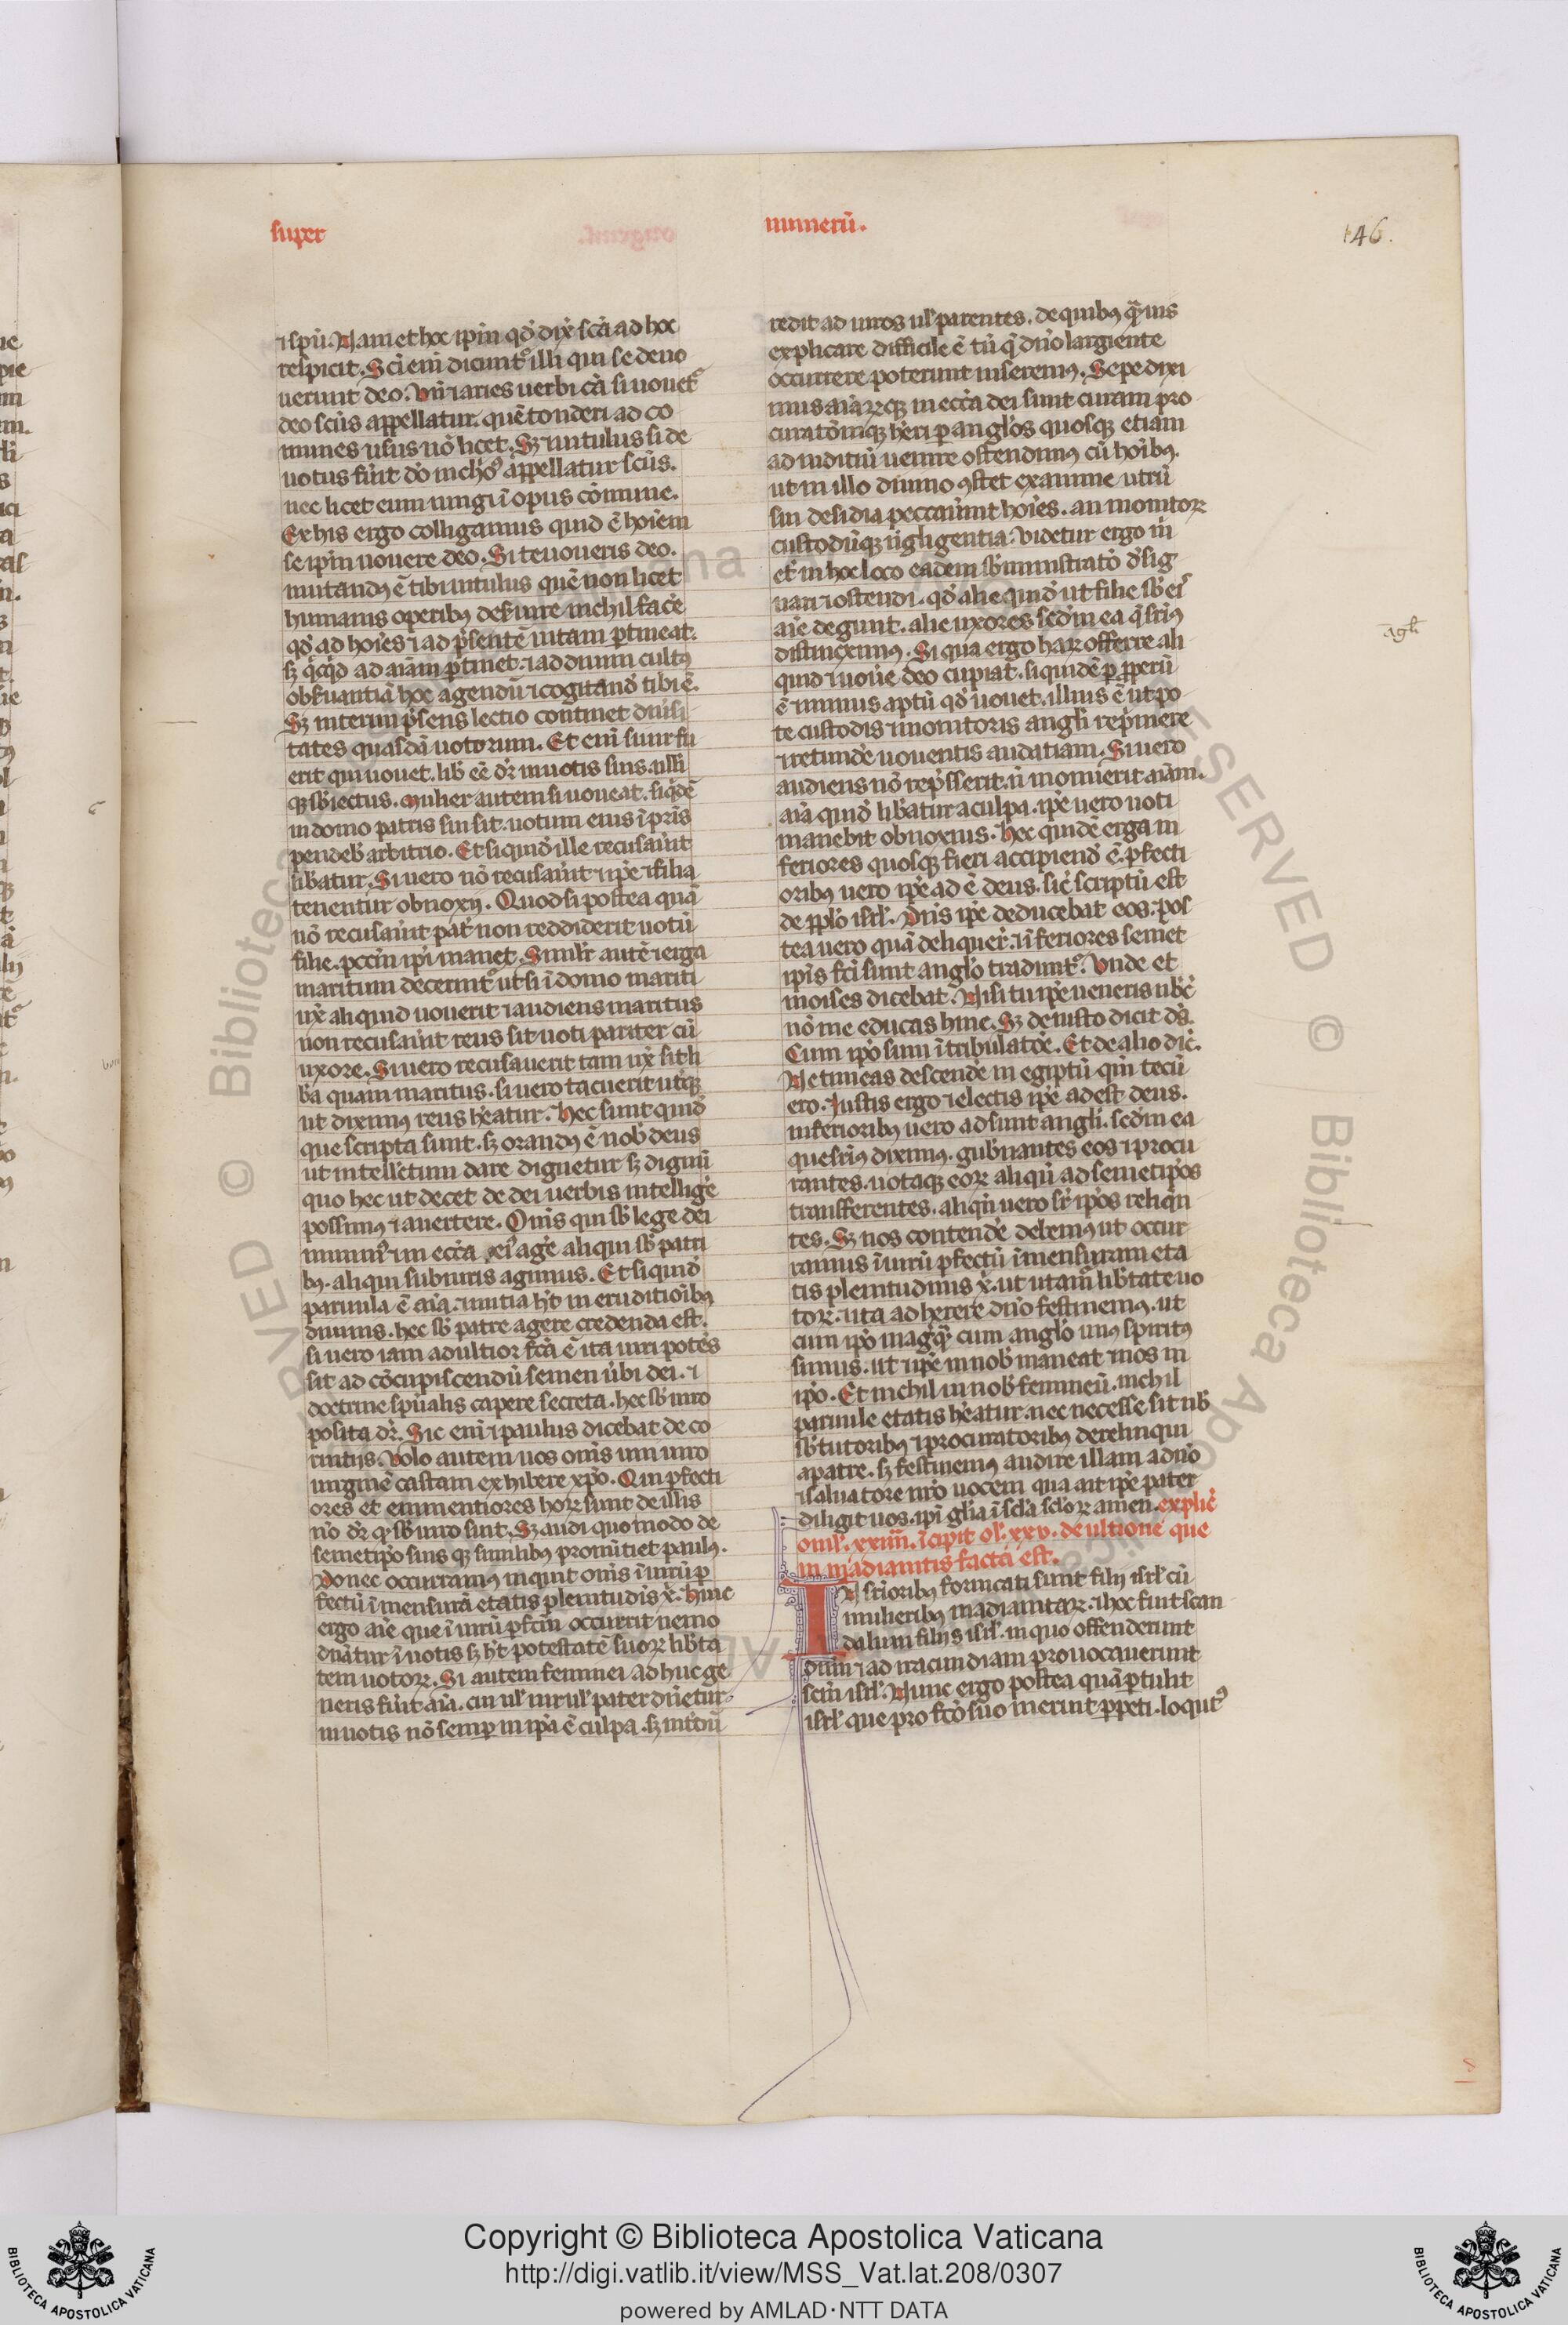 super
numerū.
146.
⁊ spū. Nam et hoc ipm qđ dix̄ scā ad hoc
respicit. Sci eni dicunt᷑ illi qui se deuo
uerunt deo. Vn̄ ⁊ aries uerbi cā si uouet᷑
deo scūs appellatur. quē tonderi ad co
munes usus nō licet. Sꝫ ⁊ uitulus si de
uotus fūit dō nichoꝰ appellatur scūs.
nec licet eum iungi ī opus cōmune.
Ex his ergo colligamus quid ē hoiem
se ipm uouere deo. Si te uoueris deo.
imitandꝰ ē tibi uitulus quē non licet
humanis operibꝰ deseruire nichil facē
qđ ad hoīes ⁊ ad p̄sentē uitam ꝑtineat.
sꝫ qͥcqͥd ad aiam ꝑtinet. ⁊ ad diuini cultꝰ
obseruantiā hoc agendū ⁊ cogitandū tibi ē.
Sꝫ interim p̄sens lectio continet diuersi
tates quasdā uotorum. Et eni siuir fu
erit qui uouet. lib̄ eē dr̄ in uotis suis. nlli
qꝫ sb̄iectus. Mulier autem si uoueat. siqͥdē
in domo patris sui sit. uotum eius ī pris
pendeb̄ arbitrio. Et siquid̄ ille recusaūit
lib̄atur. Si uero nō recusaūit ⁊ ip̄e ⁊ filia
tenentur obnoxij. Quod si postea quā
nō recusaūit pat̄ non reddiderit uotū
filie. pccm̄ ip̄i manet. Simil̄r autē ⁊ erga
maritum decernit᷑ ut si ī domo mariti
ux̄ aliquid uouerit ⁊ audiens maritus
non recusaūit reus sit uoti pariter cū
uxore. Si uero recusauerit tam ux̄ sit li
b̄a quam maritus. si uero tacuerit utqꝫ
ut diximꝰ reus heatur. Hec sunt quid̄
que scripta sunt. sꝫ orandꝰ ē nob̄ deus
ut intellectum dare dignetur sꝫ dignū
quo hec ut decet de dei uerbis intelligē
possimꝰ ⁊ auertere. Omīs qui sb̄ lege dei
uiuimꝰ ⁊ in ecc̄a eiꝰ agē aliqui sb̄ patri
bꝰ. aliqui sub uiris agimus. Et siquid̄
paruula ē aia. ⁊ initia hʼt in eruditioībꝰ
diuinis. hec sb̄ patre agere credenda est.
si uero iam adultior fcā ē ita uiri potēs
sit ad cōcupiscendū semen ūbi dei. ⁊
doctrine spūalis capere secreta. hec sb̄ uiro
posita dr̄. Sic eni ⁊ paulus dicebat de co
rintijs. Volo autem uos omīs uni uiro
uirginē castam exhibere xp̄o. Qui ꝑfecti
ores et eminentiores horꝝ sunt de illis
nō dr̄ qꝫ sb̄ uiro sint. Sꝫ audi quomodo de
semetip̄o suis qꝫ similibꝰ pronūtiet paulꝰ.
Donec occurramꝰ inquit omīs ī uirū ꝑ
fectū ī mensurā etatis plenitudīs x̄. Hinc
ergo aīe que ī uirū ꝑfcm̄ occurrit nemo
dn̄atur ī uotis sꝫ hʼt potestatē suorꝝ lib̄ta
tem uotorꝝ. Si autem feminei adhuc ge
neris fūit aia. cui ul̄ uir ul̄ pater dn̄etur
in uotis nō semꝑ in ip̄a ē culpa. sꝫ int̄dū
redit ad uiros ul̄ parentes. de quibꝰ qͣuis
explicare difficile ē tū qͥ dn̄o largiente
occurrere poterunt inseremꝰ. Sepe dixi
mus aiarꝝ qꝫ in ecc̄a dei sunt curam pro
curatōmqꝫ heri ꝑ angl̄os quosqꝫ etiam
ad iuditiū uenire ostendimꝰ cū hoībꝰ.
ut in illo diuino ꝯstet examine utrū
sui desidia peccaūint hoīes. an monitorꝝ
custodūqꝫ n̄gligentia. Videtur ergo m̄
et̄ in hoc loco eadem sb̄ministratō d̄sig
nari ⁊ ostendi. qđ alie quid̄ ut filie sb̄ eiꝰ
aīe degunt. alie uxores sedm ea q̄ sr̄iꝰ
distinximꝰ. Si qua ergo harꝝ offerre ali
quid ⁊ uouē deo cupiat. siquidē ꝑ ꝓperū
ē ⁊ minus aptū qđ uouet. illius ē ut po
te custodis ⁊ monitoris angl̄i rep̄mere
⁊ retundē uouentis audatiam. Si uero
audiens nō rep̄sserit. n̄ monuerit aiam.
aia quid̄ lib̄atur a culpa. ip̄e uero uoti
manebit obnoxius. Hec quidē erga in
feriores quosqꝫ fieri accipiend̄ ē. ꝑfecti
oribꝰ uero ip̄e ad ē deus. sic̄ scriptū est
de ppl̄o isrl̄. Dn̄s ip̄e deducebat eos. pos
tea uero quā deliquer̄. ⁊ īferiores semet
ip̄is fc̄i sunt angl̄o tradunt᷑. Vnde et
moises dicebat. Nisi tu ip̄e ueneris nb̄c̄
nō me educas hinc. Sꝫ de iusto dicit dn̄s.
Cum ip̄o sum ī tribulatōe. Et de alio dic̄.
Ne timeas descendē in egiptū qm̄ tecū
ero. Iustis ergo ⁊ electis ip̄e adest deus.
inferioribꝰ uero adsunt angl̄i. sedm ea
que sr̄iꝰ diximꝰ. gub̄nantes eos ⁊ procu
rantes. uotaqꝫ eorꝝ aliqn̄ ad semetip̄os
transferentes. aliqn̄ uero sr̄ ip̄os relinqn̄
tes. Sꝫ nos contendē debemꝰ ut occur
ramus ī uirū ꝑfectū ī mensuram eta
tis plenitudinis x̄. ut utamʼ lib̄tate uo
torꝝ. ⁊ ita adherere dn̄o festinemꝰ. ut
cum ip̄o magqͣ cum angl̄o unꝰ spiritꝰ
simus. ut ⁊ ip̄e in nob̄ maneat ⁊ nos in
ip̄o. Et nichil in nob̄ femineū. nichil
paruule etatis heatur. nec necesse sit nb̄
sb̄ tutoribꝰ ⁊ procuratoribꝰ derelinqui
a patre. sꝫ festinemꝰ audire illam a dn̄o
⁊ saluatore nr̄o uocem qua ait ip̄e pater
diligit uos. ip̄i gl̄ia ī sclā sclōrꝝ amen. explic̄
omel̄. xxiiii. īcipit ol̄. xxv. de ultione que
in madianitis facta est.
IN sr̄ioribꝰ fornicati sunt filij isrl̄ cū
mulieribꝰ madianitarꝝ. ⁊ hoc fuit scan
dalum filijs isrl̄. in quo offenderunt
dn̄m ⁊ ad iracundiam prouocauerunt
scm̄ isrl̄. Nunc ergo postea quā ꝑtulit
isrl̄ que pro fcō suo merint ꝑpeti. loquit᷑
āgl̄i